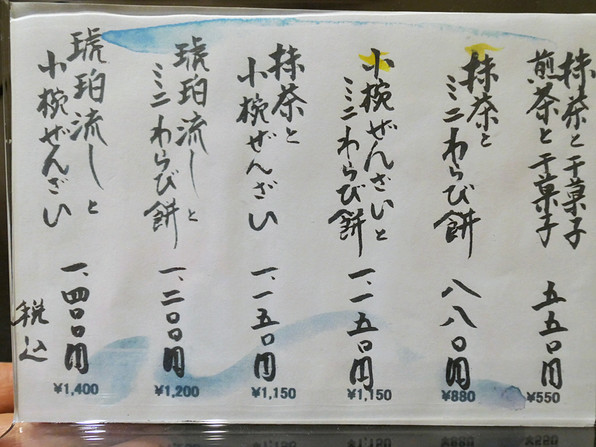 抹茶と干菓子
煎茶と干菓子
五五〇円
¥550
抹茶と
ミニわらび餅
八八〇円
¥880
小椀ぜんざいと
ミニわらび餅
一、一五〇円
¥1,150
抹茶と
小椀ぜんざい
一、一五〇円
¥1,150
琥珀流しと
ミニわらび餅
一、二〇〇円
¥1,200
琥珀流しと
小椀ぜんざい
一、四〇〇円
¥1,400
税込